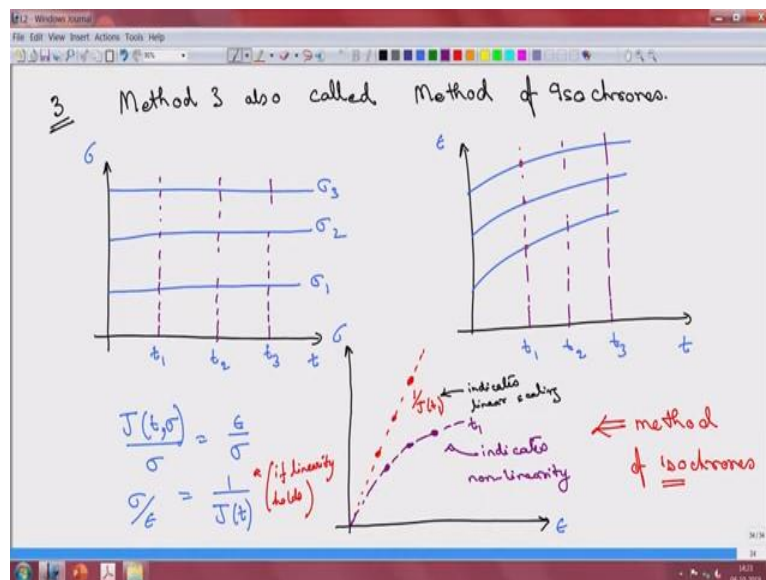 L2 - Windows Journal
File Edit View Insert Actions Tools Help
3 Method 3 also called Method of Isochrones.
σ
σ3
σ2
σ1
t1 t2 t3 t
ε
t1 t2 t3 t
J(t,σ)/σ = ε/σ
σ/ε = 1/J(t) (if linearity holds)
σ
1/J(t1)
indicates
linear scaling
t1
indicates
non-linearity
ε
⇐ method
of isochrones
34/34
34
14:23